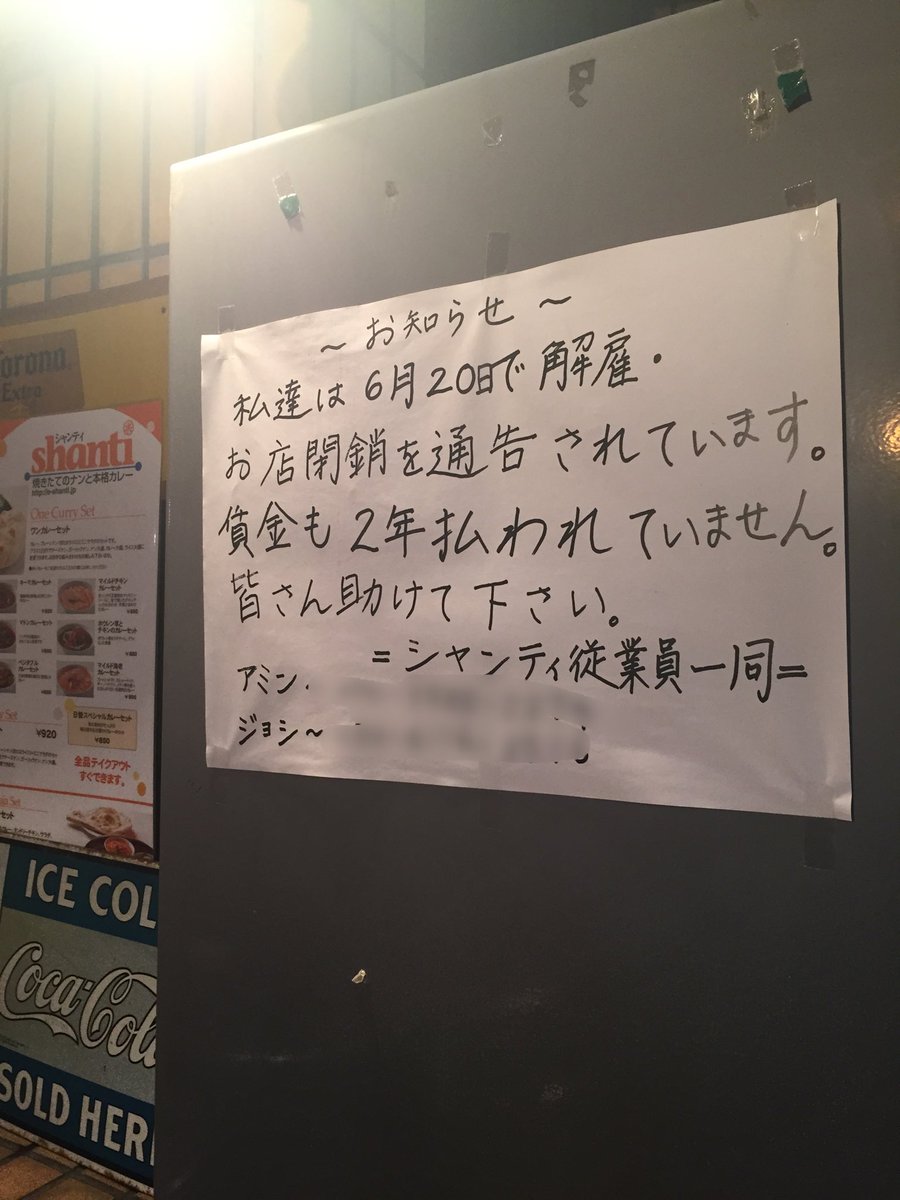 ～お知らせ～
私達は6月20日で解雇・
お店閉鎖を通告されています。
賃金も2年払われていません。
皆さん助けて下さい。
=シャンティ従業員一同=
アミン.
ジョシ～
Corona
Extra
シャンティ
shanti
焼きたてのナンと本格カレー
http://e-shanti.jp
One Curry Set
ワンカレーセット
キーマカレーセット
マイルドチキン
カレーセット
マトンカレーセット
ホウレン草と
チキンのカレーセット
ベジタブル
カレーセット
マイルド海老
カレーセット
日替スペシャルカレーセット
¥920
¥850
全品テイクアウト
すぐできます。
ICE COL
Coca-Cola
SOLD HER